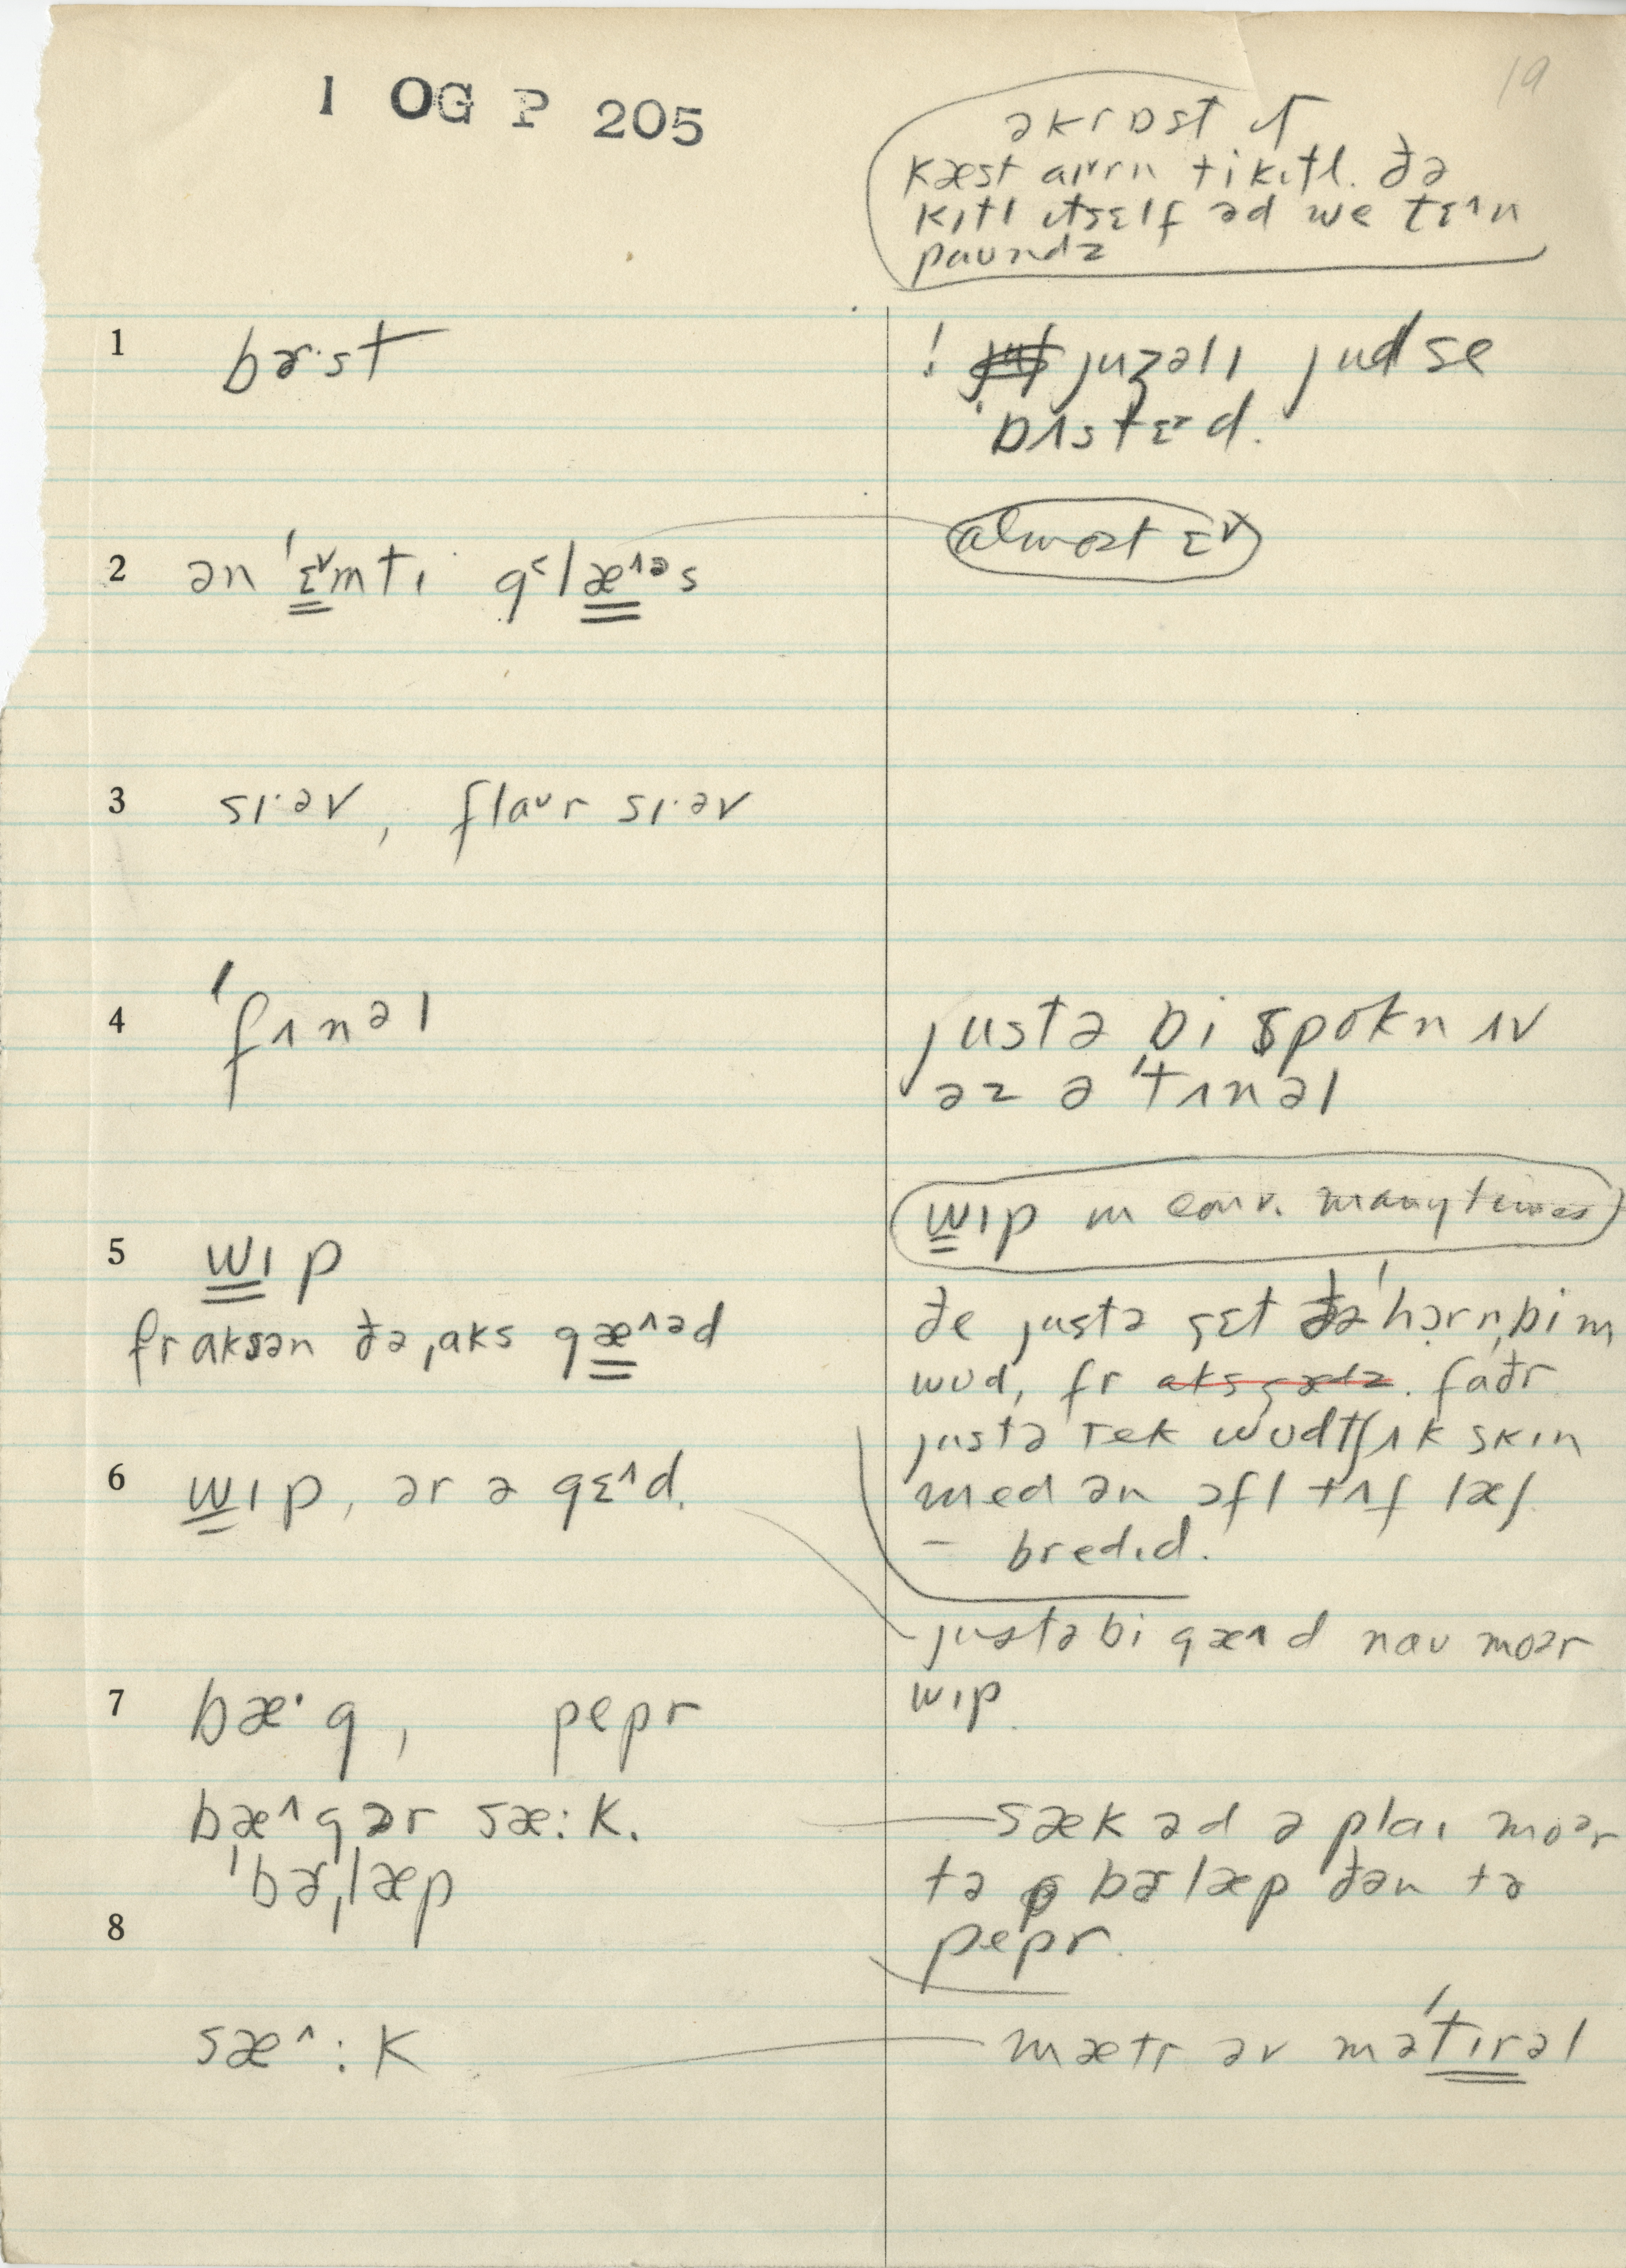 1 OG P 205
19
əkrɒst ɪt
kæst aɪrn tikɪtl. ðə
kɪtl ɪtsɛlf əd we tɛ^n
paundz
1 bɚ·st
! juʒəlɪ jud se
'bʌstɛɚd.
2 ən 'ɛ˅mtɪ g˂læ^əs
almost ɛ˅
3 sɪ·əv, flaʊr sɪ·əv
4 'fʌnəl
justə bi spokn ʌv
əz ə 'tʌnəl
wɪp in conv. many times
5 wɪp
fr aksən ðə ˌaks gæ^əd
ðe justə gɛt ðə 'hɔrnˌbim
wʊd, fr aks gædz. faðr
justə tek wʊdtʃʌk skɪn
6 wɪp, ər ə gɛ^d.
med ən ɔfl tʌf læʃ
– bredɪd.
justə bi gæ^d nau moər
wɪp.
7 bæ·g, pepr
bæ^g ər sæ:k.
sæk əd əplaɪ moər
'bɚˌlæp
tə bɚlæp ðən tə
pepr.
8
sæ^:k
mætr əv mə'tɪrəl